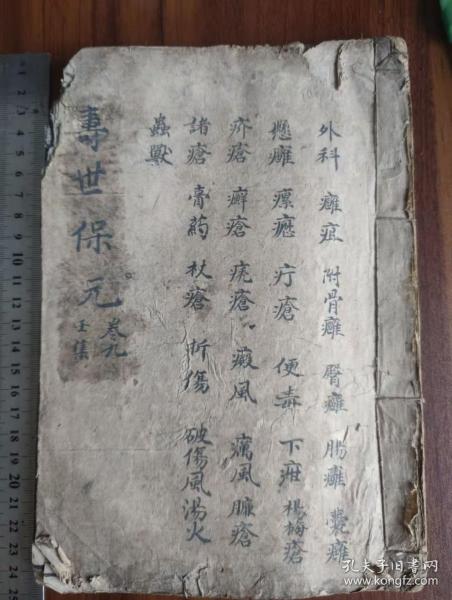 外科 癰疽 附骨癰 臀癰 腸癰 囊癰
懸癰 瘰癧 疔瘡 便毒 下疳 楊梅瘡
疥瘡 癬瘡 疣瘡 癜風 癘風 臁瘡
諸瘡 膏葯 杖瘡 折傷 破傷風 湯火
蟲獸
壽世保元 卷九
壬集
孔夫子旧书网
www.kongfz.com